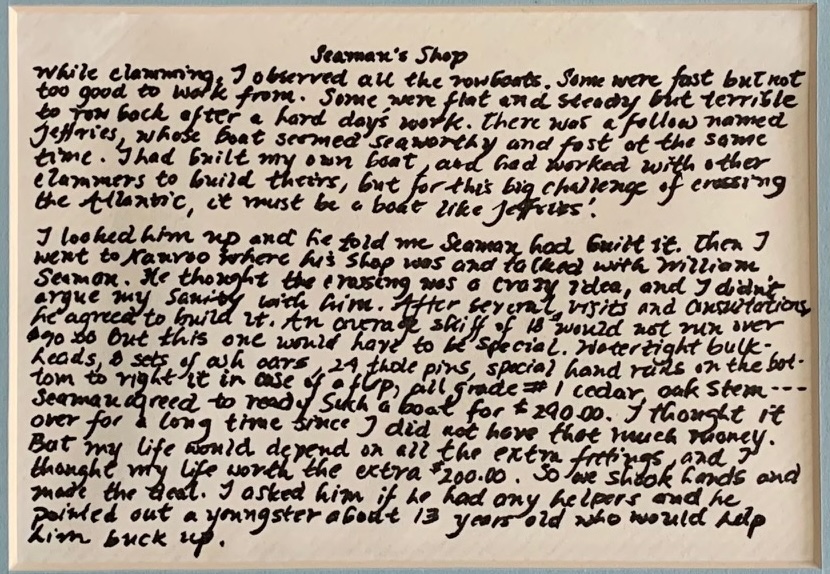 Seaman's Shop
While clamming, I observed all the rowboats. Some were fast but not
too good to work from. Some were flat and steady but terrible
to row back after a hard days work. There was a fellow named
Jeffries, whose boat seemed seaworthy and fast at the same
time. I had built my own boat, and had worked with other
clammers to build theirs, but for this big challenge of crossing
the Atlantic, it must be a boat like Jeffries'.
I looked him up and he told me Seaman had built it. Then I
went to where his shop was and talked with William
Seaman. He thought the crossing was a crazy idea, and I didn't
argue my Sanity with him. After several visits and Consultations,
he agreed to build it. An average skiff of 18 would not run over
$90.00 But this one would have to be special. Watertight bulk-
heads, 8 sets of ash oars, 24 thole pins, special hand rails on the bot-
tom to right it in case of a flip, all grade # 1 cedar, oak Stem ---
Seaman agreed to ready Such a boat for $290.00. I thought it
over for a long time since I did not have that much money.
But my life would depend on all the extra fittings, and I
thought my life worth the extra $200.00. So we shook hands and
made the deal. I asked him if he had any helpers and he
pointed out a youngster about 13 years old who would help
him buck up.